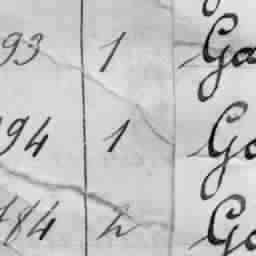 93 1 Ga
94 1 Ga
484 2 Ga